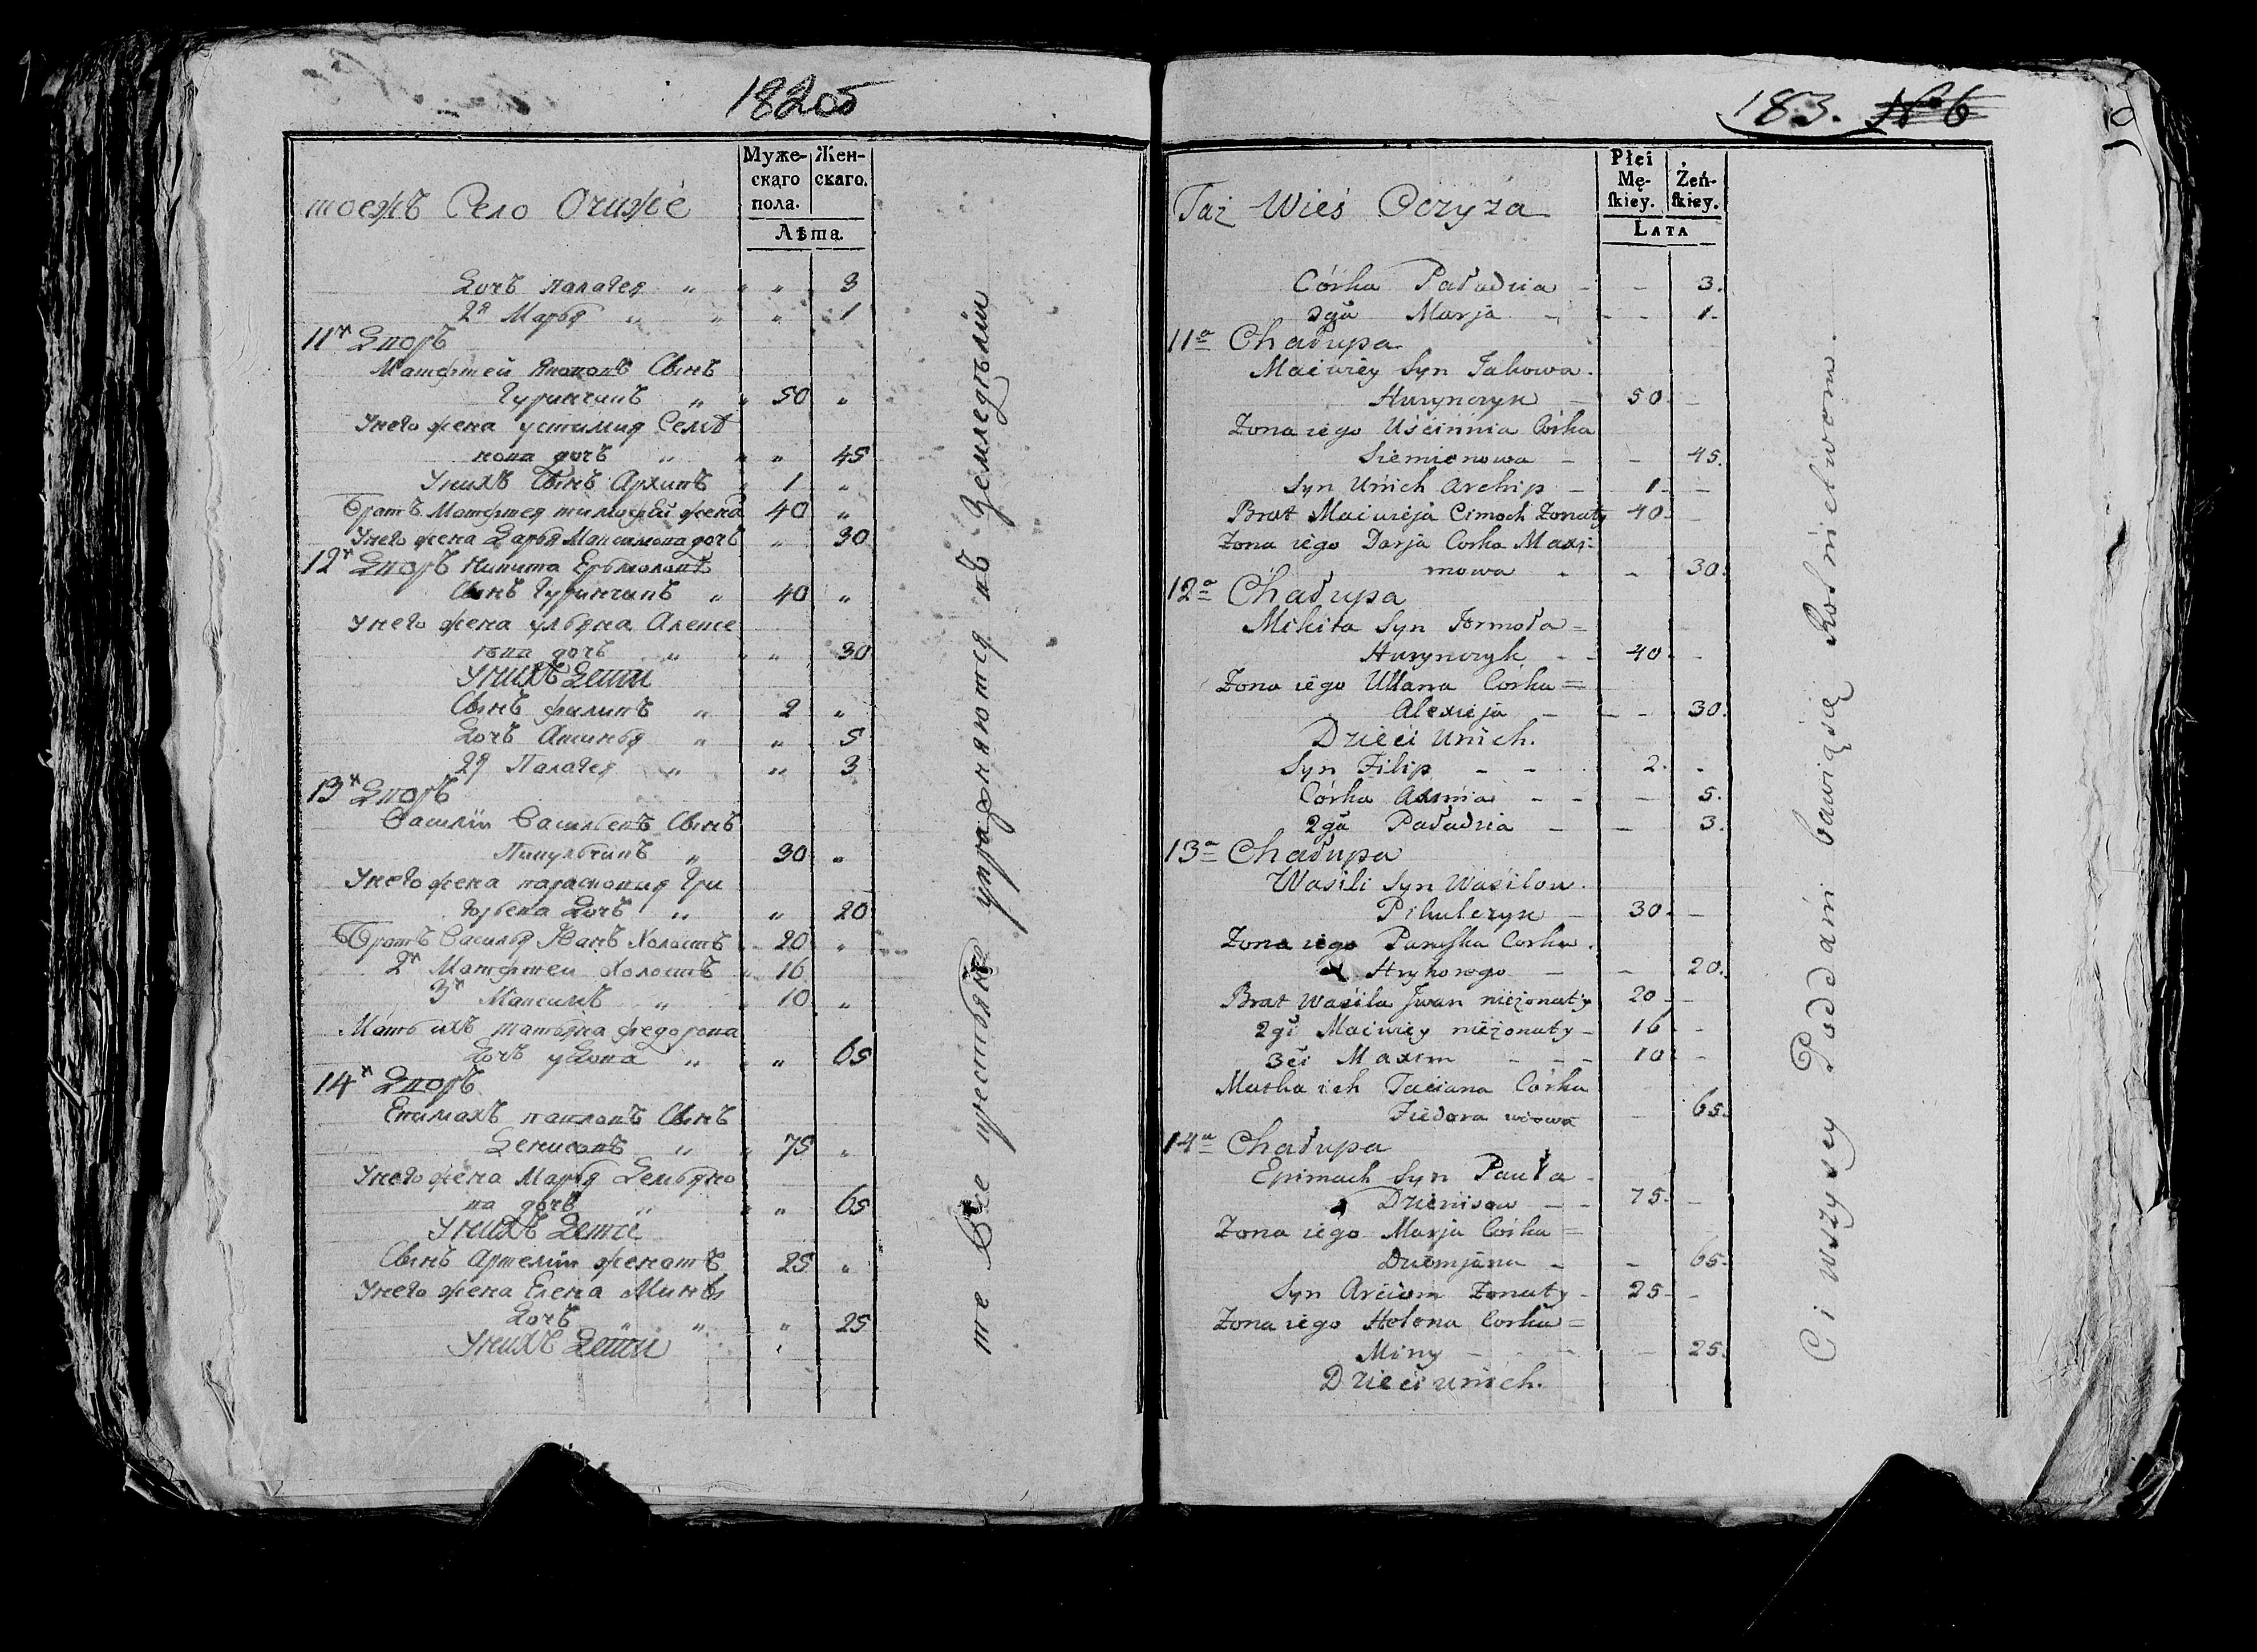 182об
Муже-
скаго
пола.
Жен-
скаго.
Лѣта.
тоежъ Село Очиже
Дочъ палагея " " " 3
2я Марья " " " 1
11й Дворъ
Матфтей Якововъ Сынъ
Гуринчикъ " " 50 "
Унего жена устимия Семе
нова дочъ " " " 45
Унихъ Сынъ Архипъ " 1 "
Братъ Матфтея тимофей жена 40 "
Унего жена Дарья Максимова дочъ " 30
12й Дворъ Никита Ермоловъ
Сынъ Гуринчикъ " 40 "
Унего жена ульяна Алексе
ева дочъ " " " 30
Унихъ Дети
Сынъ филипъ " 2 "
Дочъ Аксинья " " 5
2я Палагея " " 3
13й Дворъ
Василіи Васильевъ Сынъ
Пикульчикъ " 30 "
Унего жена парасковия Гри
горьева Дочъ " " 20
Братъ Василья Иванъ Холостъ 20 "
2й Матфтеи Холостъ " 16
3й Максимъ " " 10 "
Мать ихъ татьяна федорова
Дочъ удова " " " 65
14й Дворъ
Епимахъ павловъ Сынъ
Денисовъ " " 75 "
Унего жена Марья Демьяно
ва дочъ " " " 65
Унихъ Дети
Сынъ Артеміи женатъ 25 "
Унего жена Елена Мины
Дочъ " " " 25
Унихъ Дети "
те Все крестьяне упражняются въ Земледелыи
183. № 6
Płci
Mę-
ſkiey.
Żeń-
ſkiey.
LATA
Taż Wieś Oczyża
Córka Paładzia - - 3.
2ga Marja - - - 1-
11a Chałupa
Maciwiey Syn Jakowa.
Hurynczyk - 50 -
Zona iego Uścimnia Córka
Siemionowa - - 45.
Syn Unich Archip - 1 - -
Brat Maciwieja Cimoch Zonaty 40 -
Zona iego Darja Corka Maxi-
mowa - - 30.
12a Chałupa
Mikita Syn Jormoła =
Hurynczyk - - 40 - -
Zona iego Ullana Corka =
Alexieja - - - 30.
Dzieci Unich.
Syn Filip - - 2 - -
Córka Axinia - - - 5.
2ga Paładzia - - 3.
13a Chałupa
Wasili Syn Wasilow.
Pikulczyk - 30 - -
Zona iego Paraska Corka.
Hryhorego - - 20.
Brat Wasila Jwan nieżonaty 20 - -
2gi Maciwiey nieżonaty - 16 -
3ci Maxim - - - 10 -
Matka ich Taciana Córka
Fiedora wdowa - 65.
14a Chałupa
Epimach Syn Pauła -
Dzienisow - - 75 - -
Zona iego Marja Corka =
Dziemjana - - 65-
Syn Arciom Zonaty - 25 - -
Zona iego Helena Corka =
Miny - - - - 25.
Dzieci unich.
Ci wszyscy Poddani bawią się Rolnictwom.